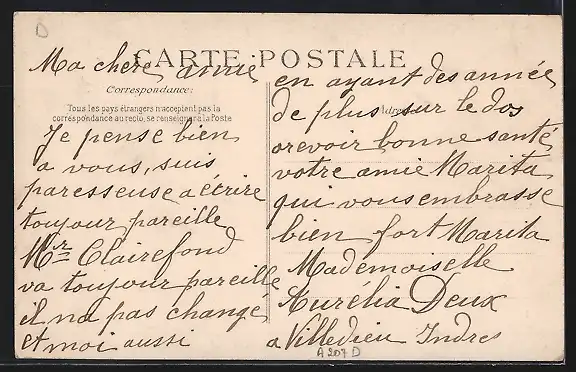 D
CARTE POSTALE
Ma chere amie
Correspondance:
Tous les pays étrangers n'acceptent pas la
correspondance au recto, se renseigner à la Poste
Je pense bien
a vous, suis
paresseuse a écrire
toujour pareille
Mr Clairefond
va toujour pareille
il na pas changé
et moi aussi
en ayant des année
de plus sur le dos
Adresse
orevoir bonne santé
votre amie Marita
qui vous embrasse
bien fort Marita
Mademoiselle
Aurélia Deux
a Villedieu Indre
A 207 D